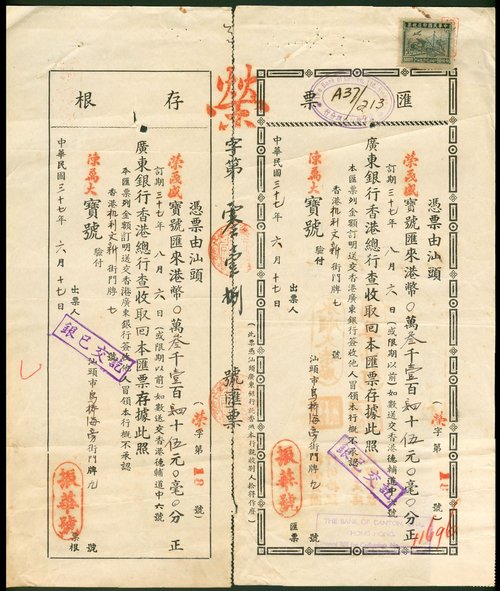 匯票
A37/213
憑票由汕頭
榮茂盛寶號匯來港幣〇萬叁千壹百四十伍元〇毫〇分正
(榮字第18號)
訂期三十七年八月六日(或限期以前)如數送交香港德輔道中六號
廣東銀行香港總行查收取回本匯票存據此照
本匯票列金額訂明送交香港廣東銀行簽收他人冒領本行概不承認
陳萬大寶號驗付
香港乍利文新街門牌七號
中華民國三十七年六月十七日
匯票
出票人
汕頭市烏橋海旁街門牌九號
振華號
銀已交訖
THE BANK OF CANTON
HONG KONG
榮字第零壹捌號匯票
存根
憑票由汕頭
榮茂盛寶號匯來港幣〇萬叁千壹百四十伍元〇毫〇分正
(榮字第18號)
訂期三十七年八月六日(或限期以前)如數送交香港德輔道中六號
廣東銀行香港總行查收取回本匯票存據此照
本匯票列金額訂明送交香港廣東銀行簽收他人冒領本行概不承認
陳萬大寶號驗付
香港乍利文新街門牌七號
中華民國三十七年六月十七日
票根
出票人
汕頭市烏橋海旁街門牌九號
振華號
銀已交訖